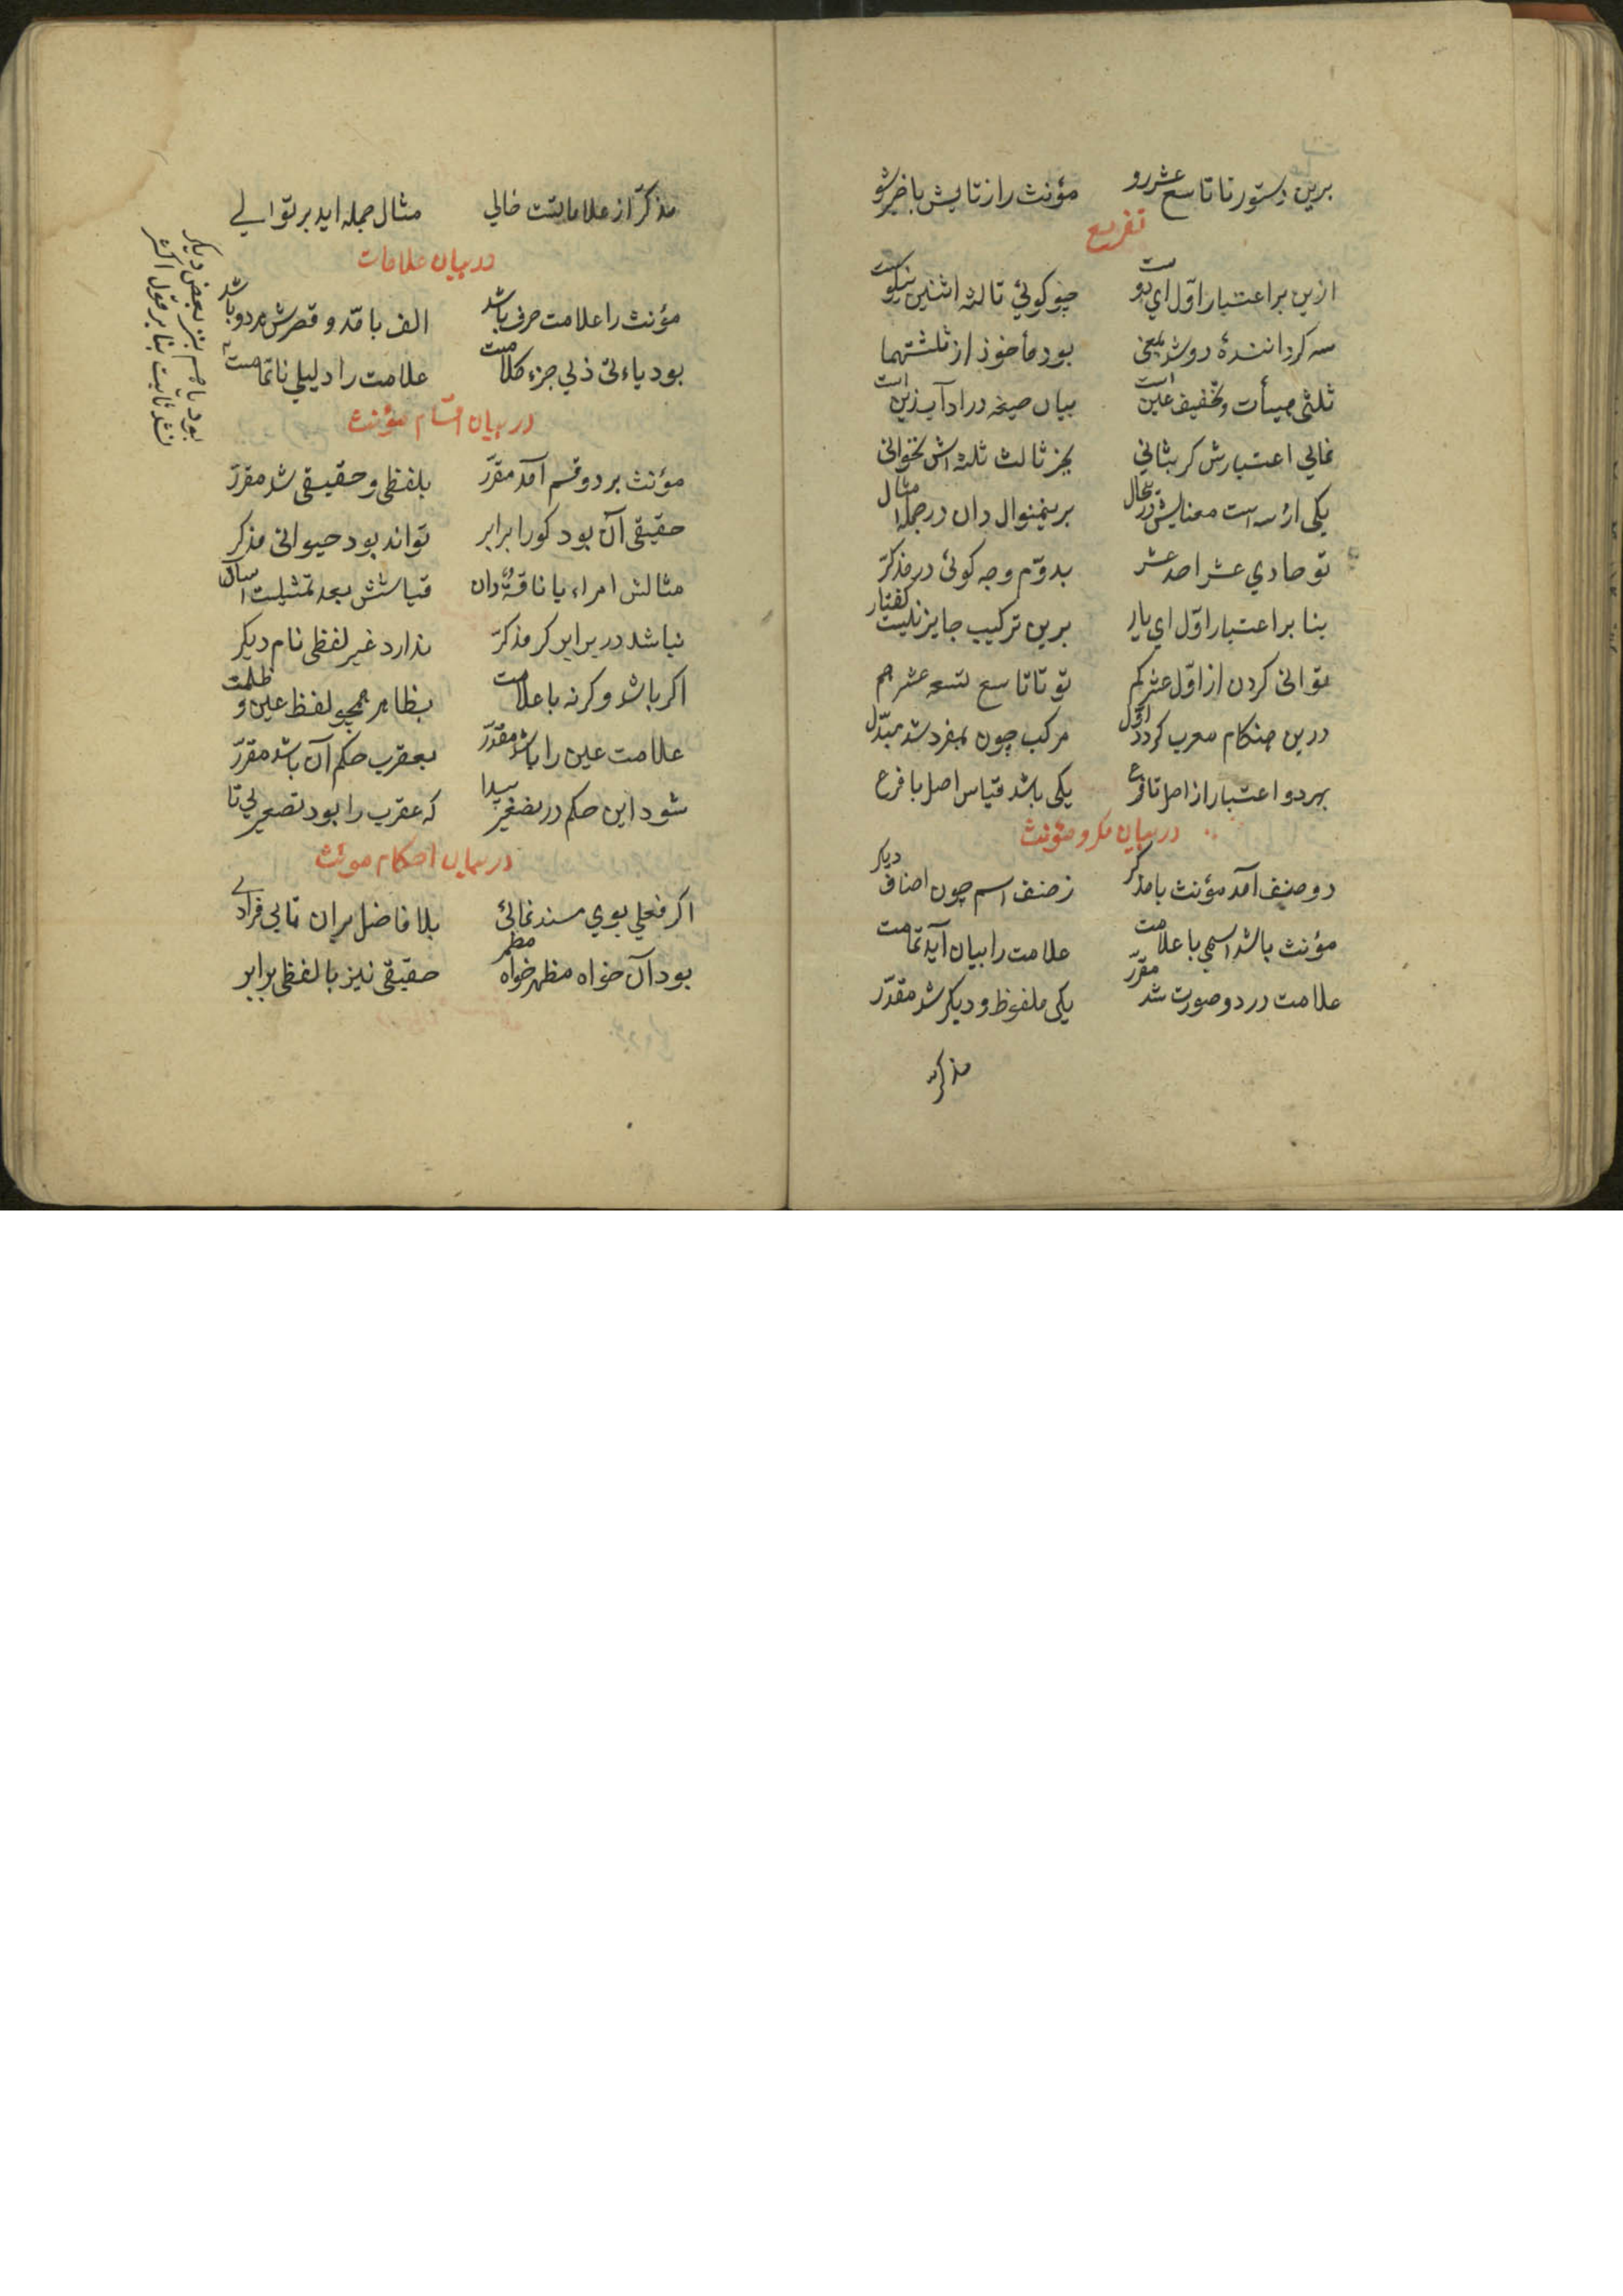 برین دستور تا تاسع عشر رو مؤنث را ز تایش باخبر شو
تفریع
ازین بر اعتبار اوّل ای دوست چو کوئی ثالثه اثنین نیکوست
سه کرداننده دو شد بمعنی بود مأخوذ از ثلثتهما
ثلثی مییأت و تخفیف عین است بیان صیغه در ادآب زین است
نمایی اعتبارش کر بثانی بجز ثالث ثلثه اش نخوانی
یکی از سه است معنایش در حال برینمنوال دان در جمله امثال
تو حادی عشر احد عشر بدوّم وجه کوئی در مذکّر
بنا بر اعتبار اوّل ای یار برین ترکیب جایز نیست کفتار
توانی کردن از اوّل عشر کم تو تا تاسع تسعه عشر هم
درین هنکام معرب کردد اوّل مرکب چون بمفرد شد مبدّل
بهر دو اعتبار از اصل تا فرع یکی باشد قیاس اصل با فرع
در بیان مذکر و مؤنث
دو صنف آمد مؤنث با مذکر ز صنف اسم چون اصناف دیکر
مؤنث باشد اسمی با علامت علامت را بیان آید تمامت
علامت در دو صورت شد مقرّر یکی ملفوظ و دیکر شد مقدّر
مذکّر
مذکّر از علامایتت خالی مثال جمله اید بر توالی
در بیان علامات
مؤنث را علامت حرف تا شد الف با مدّ و قصرش هر دو باشد
بود یاء تی ذلی جزء کلامت علامت را دلیلی ناتمامست
در بیان اقسام مؤنث
مؤنث بر دو قسم آمد مقرّر بلفظی و حقیقی شد مقرّر
حقیقی آن بود کو را برابر تواند بود حیوانی مذکر
مثالش امراء یا ناقة دان قیاسش بعد تمثیلست آسان
نباشد در برابر کر مذکّر ندارد غیر لفظی نام دیکر
اکر باشد وکر نه با علامت بظاهر همچو لفظ عین و ظلمت
علامت عین را باشد مقدّر بعقرب حکم آن باشد مقرّر
شود این حکم در تصغیر پیدا که عقرب را بود تصغیر بی تا
در بیان احکام مونث
اکر فعلی بوی مسند نمائی بلا فاضل بران تایی فزایی
بود آن خواه مظهر خواه مظمر حقیقی نیز با لفظی برابر
بود یا هم بنزد بعض دیکر
نشد ثابت بنا بر قول اکثر